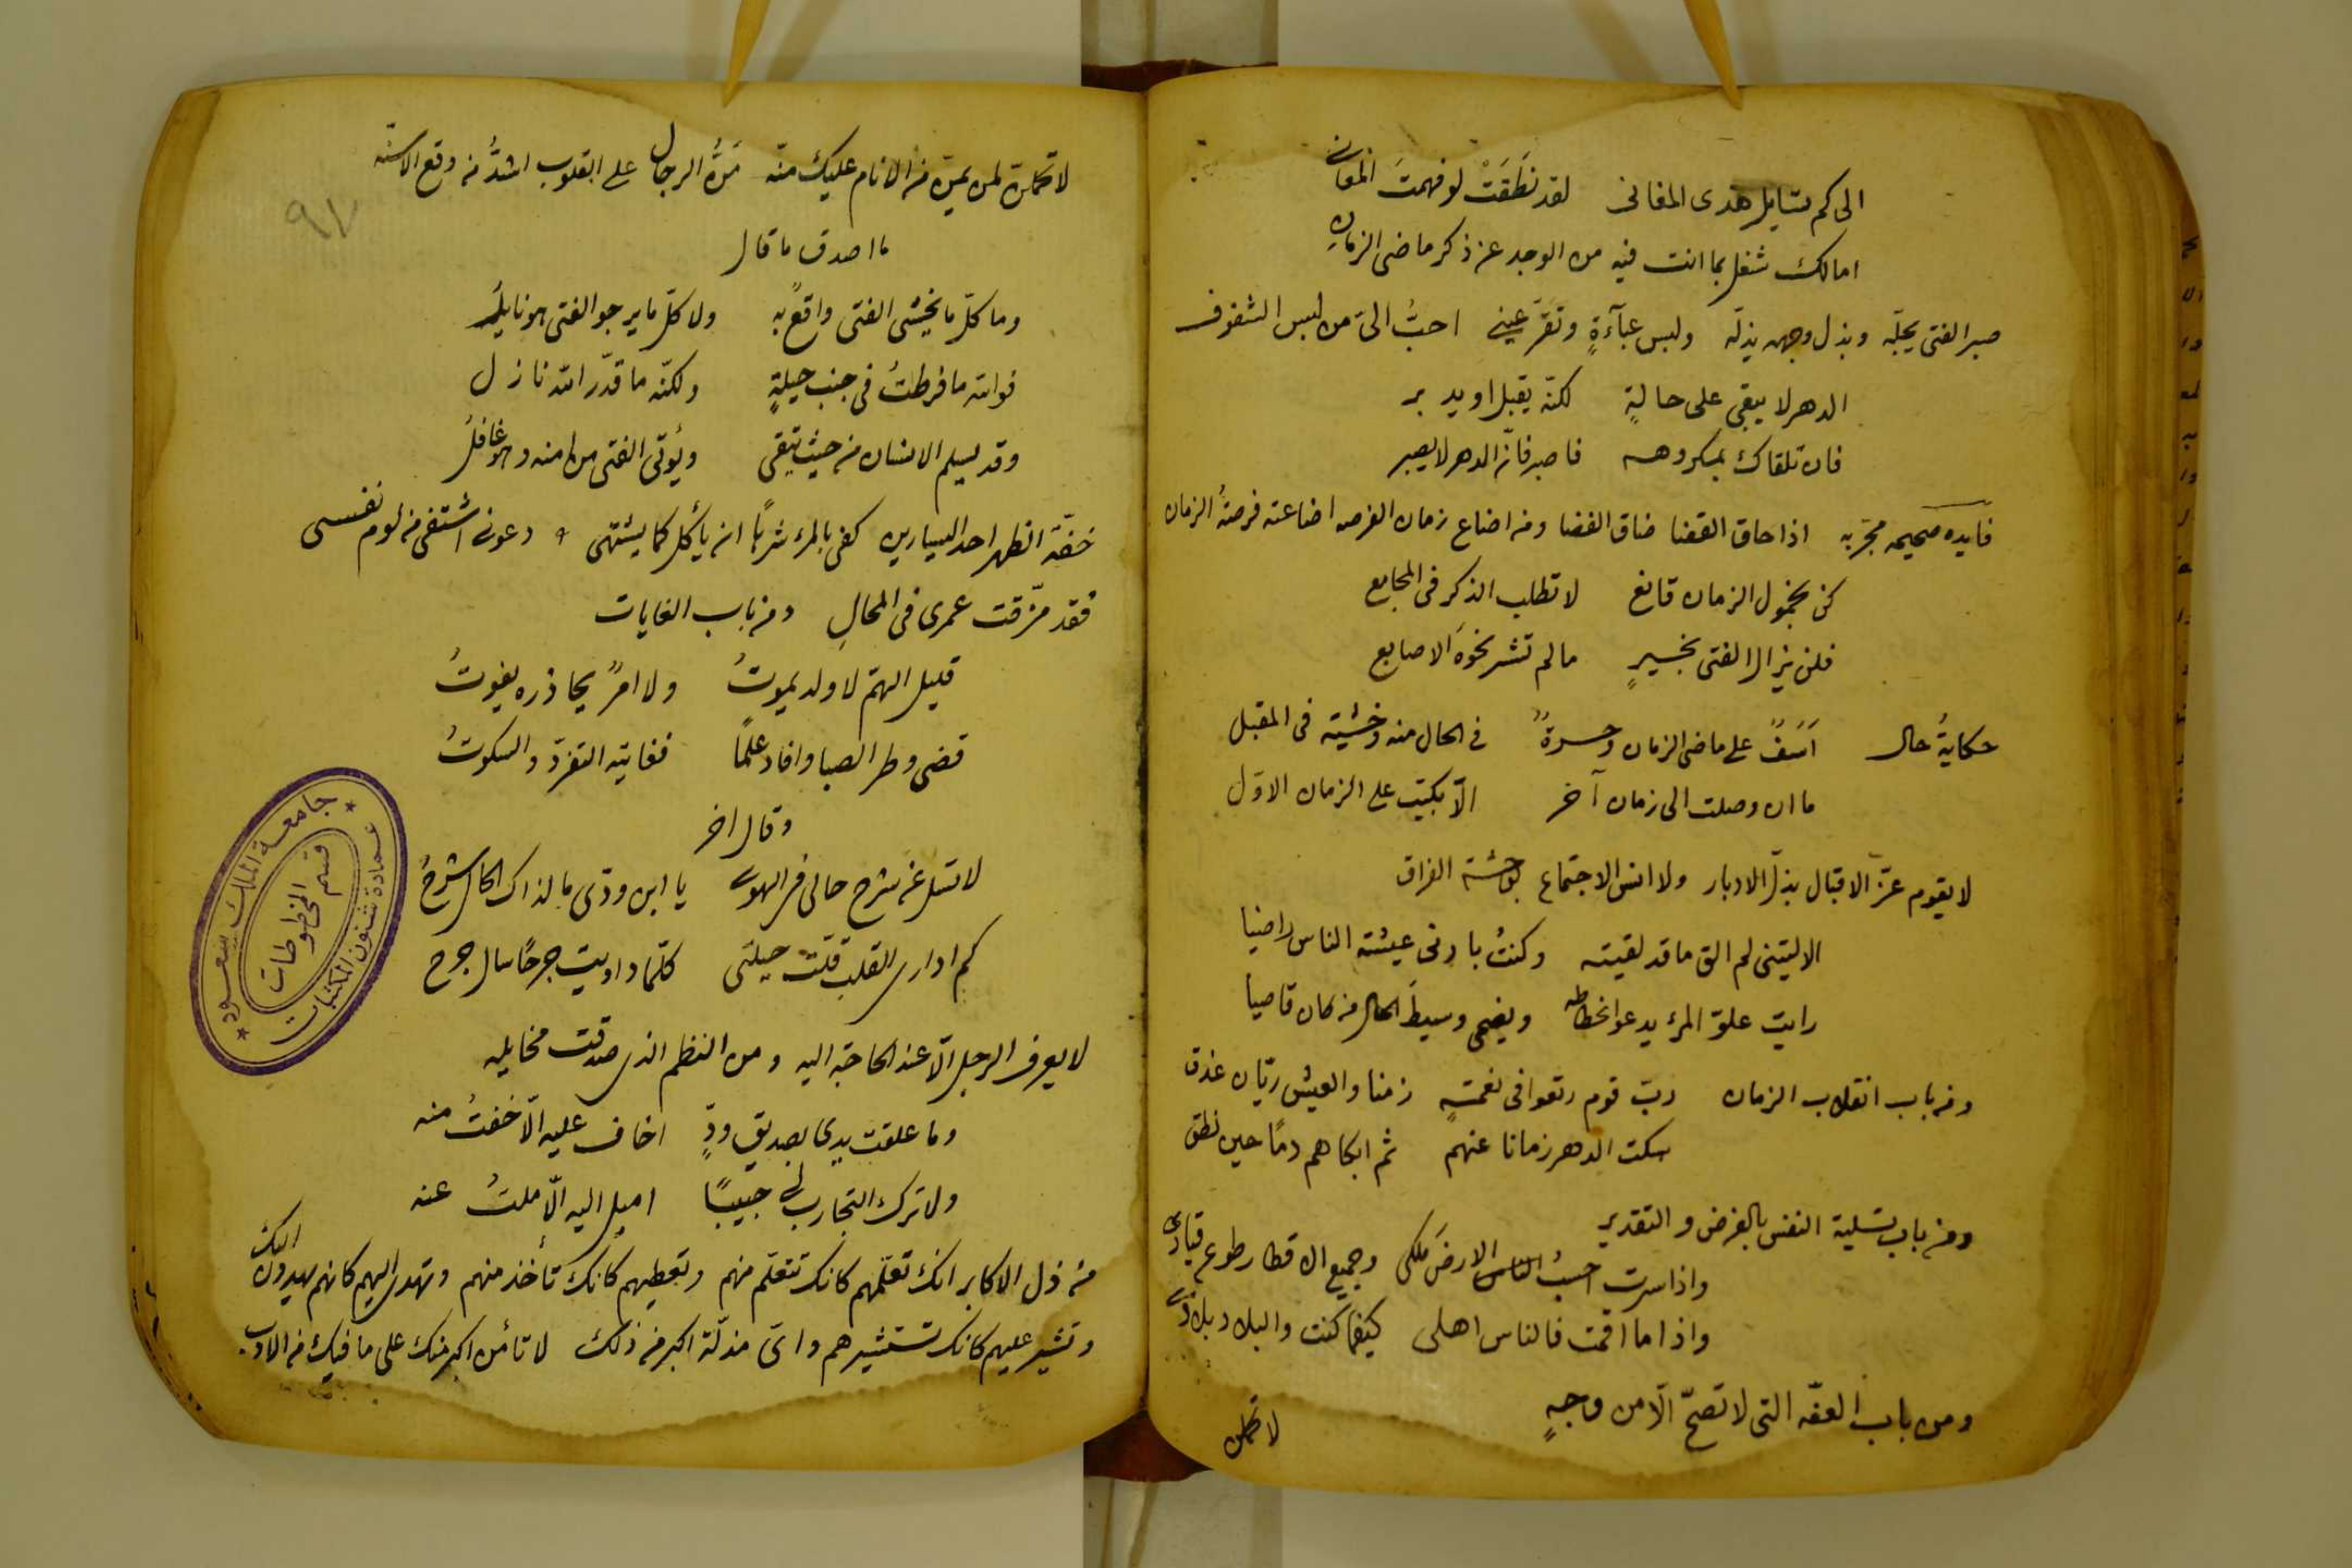 الى كم تسايل هذى المغانى لقد نَطَقَتْ لو فهمتَ المعانى
امالك شغل بما انت فيه من الوجد عن ذكر ماضى الزمان
صبر الفتى يجلّه وبذل وجهه يذلّه ولبس عبآءةٍ وتقرّ عينى احبّ الىّ من لبس الشفوف
الدهر لا يبقى على حالةٍ لكنّه يقبل او يدبر
فان تلقاك بمكروهه فاصبر فانّ الدهر لا يصبر
فايده صحيحه مجرّبه اذا حاق القضا ضاق الفضا ومن اضاع زمان الفرصه اضاعته فرصةُ الزمان
كن بخمول الزمان قانع لا تطلب الذكر فى المجامع
فلن يزال الفتى بخيرٍ ما لم تشر نحوهَ الاصابع
حكايةُ حال اَسَفٌ على ماضى الزمان وحسرةٌ فى الحال منه وخشية فى المقبل
ما ان وصلت الى زمان آخر الّا بكيت على الزمان الاوّل
لا يقوم عزّ الاقبال بذلّ الادبار ولا انس الاجتماع بوحشة الفراق
الا ليتنى لم الق ما قد لقيته وكنتُ بادنى عيشة الناس راضيا
رايت علوّ المرء يدعو انحطاطه ويضحى وسيطَ الحال من كان قاصيا
ومن باب انقلاب الزمان ربّ قوم رتعوا فى نعمةٍ زمنا والعيش ريّان غدق
سكت الدهر زمانا عنهم ثم ابكاهم دمًا حين نطق
ومن باب تسلية النفس بالفرض والتقدير
واذا سرت احسبُ الناس الارضَ ملكى وجميع الاقطار طوع قيادى
واذا ما اقمت فالناس اهلى كيفما كنت والبلاد بلادى
ومن باب العفّه التى لا تصحّ الّا من وجهٍ
لا تحملن
لا تحملنّ لمن يمنّ من الانام عليك منّه مَنُّ الرجال على القلوب اشدُّ من وقع الاسنّه
٩٧
ما اصدق ما قال
وما كلّ ما يخشى الفتى واقعٌ به ولا كلّ ما يرجو الفتى هو نايلُ
فوالله ما فرطتُ فى جنب حيلةٍ ولكنّه ما قدّر الله نازل
وقد يسلم الانسان من حيث يتقى ويُؤتى الفتى من امنه وهو غافلُ
خفّة الظهر احد اليسارين كفى بالمرء شرهًا ان يأكل كما يشتهى دعونى اشتفى من لوم نفسى
فقد مزّقت عمرى فى المحالِ ومن باب الغايات
قليل الهمّ لا ولد يموتُ ولا امرٌ يحاذره يفوتُ
قضى وطر الصبا وافاد علمًا فغايته التفرّد والسكوتُ
وقال اخر
لا تسل عن شرح حالى فى الهوى يا ابن ودّى ما لذاك الحال شرحُ
كم ادارى القلب قلّت حيلتى كلّما داويت جرحًا سال جرح
لا يعرف الرجل الّا عند الحاجة اليه ومن النظم الذى صدقت مخايله
وما علقت يدى بصديق ودٍّ اخاف عليه الّا خفتُ منه
ولا ترك التجارب لى حبيبًا اميل اليه الّا ملتُ عنه
من ذل الاكابر انك تعلّمهم كانك تتعلّم منهم وتعطيهم كانك تأخذ منهم وتهدى اليهم كانهم يهدون اليك
وتشير عليهم كانك تستشيرهم واىّ مذلّة اكبر من ذلك لا تأمن اكبر منك على ما فيك من الادب
جامعة الملك سعود
قسم المخطوطات
عمادة شئون المكتبات